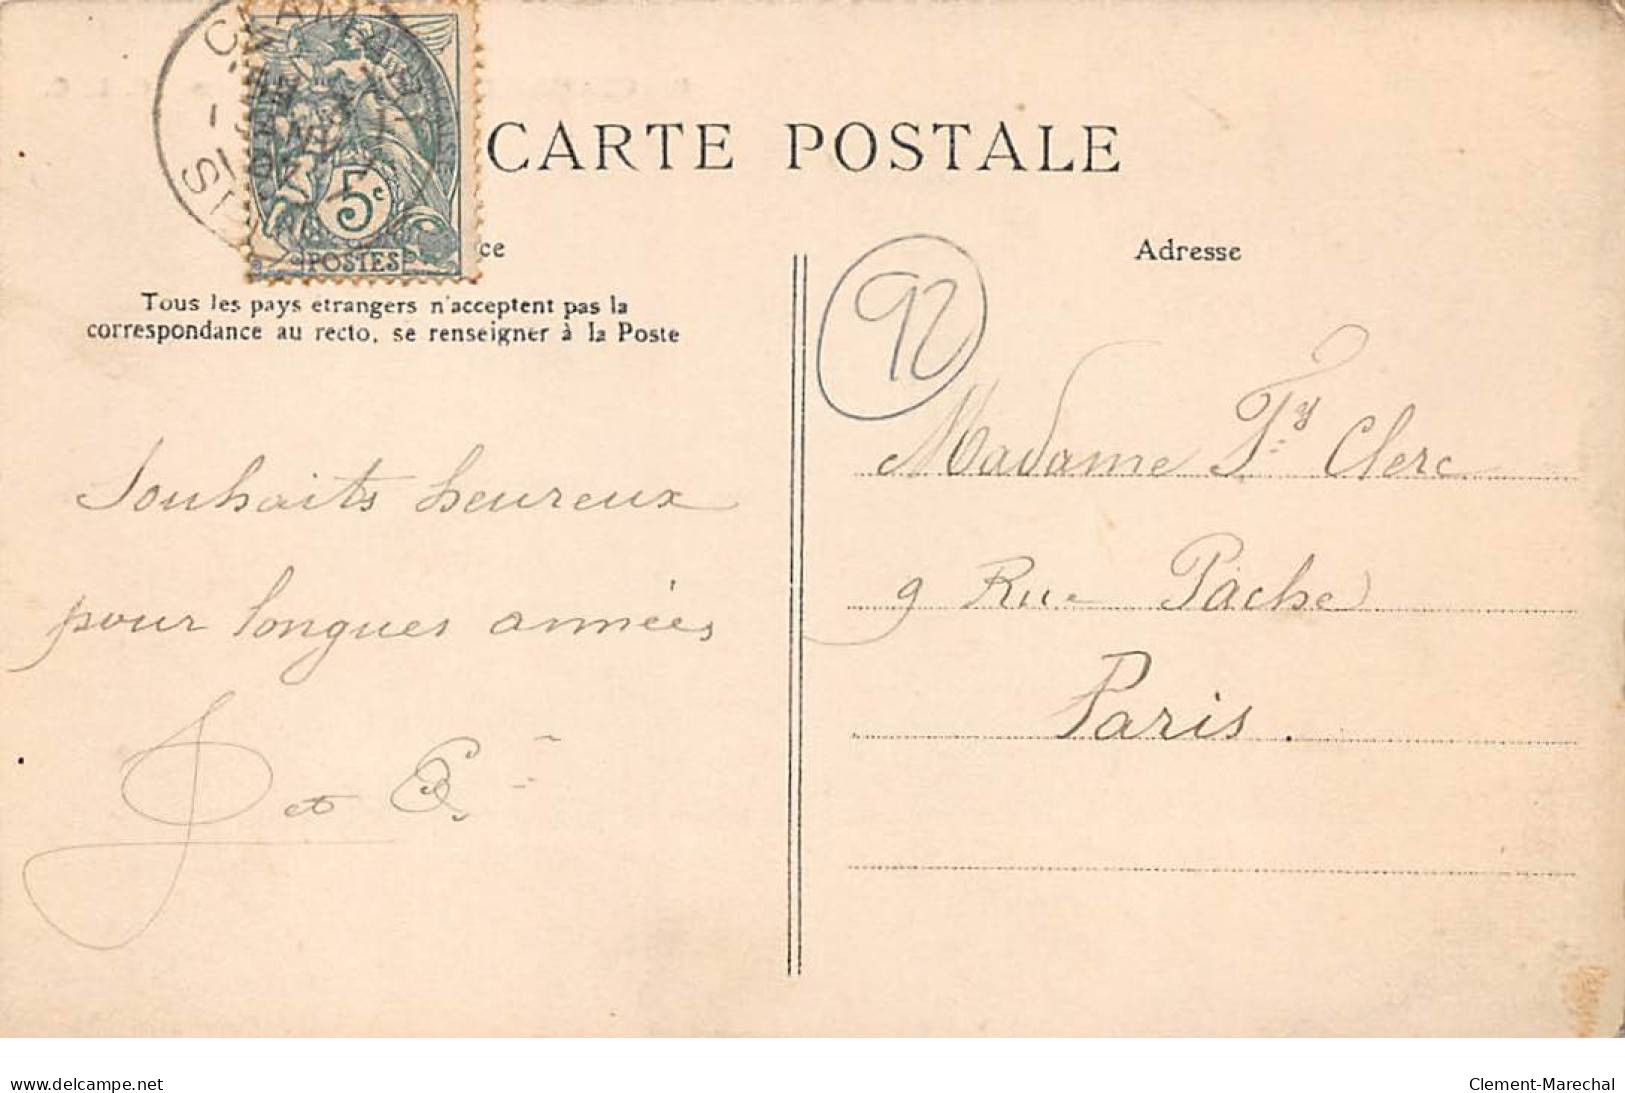 CARTE POSTALE
5c
POSTES
ce
Adresse
Tous les pays etrangers n'acceptent pas la
correspondance au recto, se renseigner à la Poste
92
Souhaits heureux
pour longues années
J et E
Madame Fs Clerc
9 Rue Pache
Paris.
www.delcampe.net
Clement-Marechal